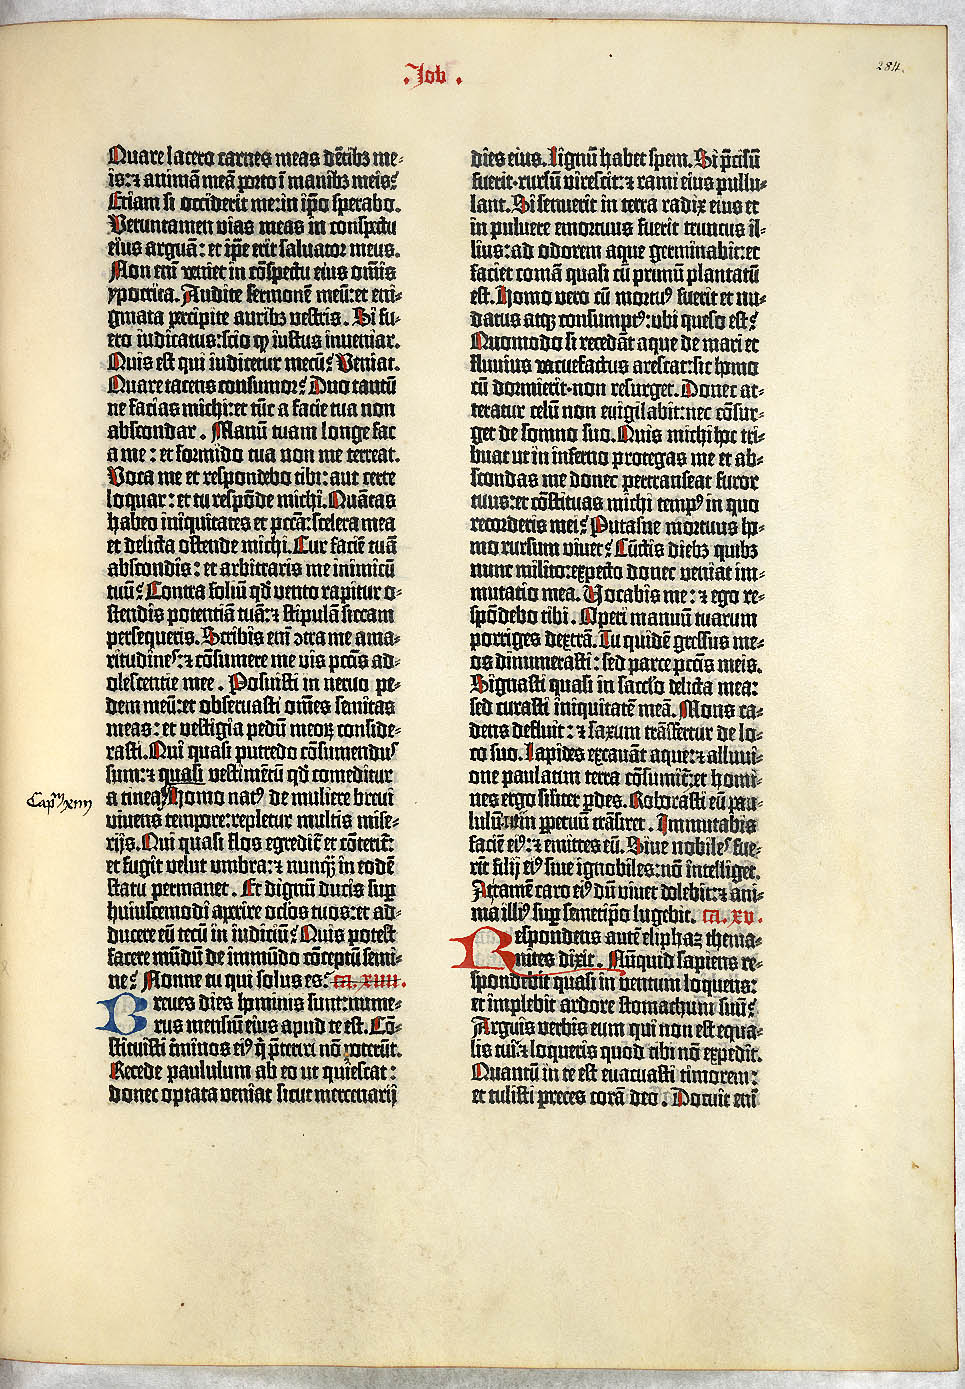 . Job .
284.
Quare lacero carnes meas dẽtibꝫ me⸗
is: ⁊ animã meã porto ĩ manibꝫ meis?
Etiam si occiderit me: in ip̃o sperabo.
Veruntamen vias meas in conspectu
eius arguã: et ip̃e erit saluator meus.
Non em̃ veniet in cõspectu eius om̃is
ypocrita. Audite sermonẽ meũ: et eni⸗
gmata percipite auribꝫ vestris. Si fu⸗
ero iudicatus: scio ꝙ iustus inueniar.
Quis est qui iudicetur mecũ? Veniat.
Quare tacens consumor? Duo tantũ
ne facias michi: et tũc a facie tua non
abscondar. Manũ tuam longe fac
a me: et formido tua non me terreat.
Voca me et respondebo tibi: aut certe
loquar: et tu respõde michi. Quãtas
habeo iniquitates et pctã: scelera mea
et delicta ostende michi. Cur faciẽ tuã
abscondis: et arbitraris me inimicũ
tuũ? Contra foliũ qd̃ vento rapitur o⸗
stendis potentiã tuã: ⁊ stipulã siccam
persequeris. Scribis em̃ ↄtra me ama⸗
ritudines: ⁊ cõsumere me vis pctis̃ ad⸗
olescentie mee. Posuisti in neruo pe⸗
dem meũ: et obseruasti om̃es semitas
meas: et vestigia pedũ meoꝝ conside⸗
rasti. Qui quasi putredo cõsumendus
sum: ⁊ quasi vestimẽtũ qd̃ comeditur
a tinea. Homo natꝰ de muliere breui
Capm̃ xiiij
viuens tempore: repletur multis mise⸗
rijs. Qui quasi flos egredit̃ et cõterit̃:
et fugit velut umbra: ⁊ nunqꝫ̃ in eodẽ
statu permanet. Et dignũ ducis sup̃
huiuscemodi aperire oclos tuos: et ad⸗
ducere eũ tecũ in iudiciũ? Quis potest
facere mũdũ de immũdo cõceptũ semi⸗
ne? Nonne tu qui solus es? ca. xiiii.
Breues dies hominis sunt: nume⸗
rus mensiũ eius apud te est. Cõ⸗
stituisti t̃minos eiꝰ q̃ p̃teriri nõ poterũt.
Recede paululum ab eo ut quiescat:
donec optata veniat sicut mercenarij
dies eius. Lignũ habet spem. Si p̃cisũ
fuerit·rursũ virescit: ⁊ rami eius pullu⸗
lant. Si senuerit in terra radix eius et
in puluere emortuus fuerit truncus il⸗
lius: ad odorem aque germinabit: et
faciet comã quasi cũ primũ plantatũ
est. Homo vero cũ mortuꝰ fuerit et nu⸗
datus atqꝫ consumptꝰ: ubi queso est?
Quomodo si recedãt aque de mari et
fluuius vacuefactus arescat: sic homo
cũ dormierit·non resurget. Donec at⸗
teratur celũ non euigilabit: nec cõsur⸗
get de somno suo. Quis michi hoc tri⸗
buat ut in inferno protegas me et ab⸗
scondas me donec pertranseat furor
tuus: et cõstituas michi tempꝰ in quo
recorderis mei? Putasne mortuus ho⸗
mo rursum viuet? Cũctis diebꝫ quibꝫ
nunc milito: expecto donec veniat im⸗
mutatio mea. Vocabis me: ⁊ ego re⸗
spõdebo tibi. Operi manuũ tuarum
porriges dextrã. Tu quidẽ gressus me⸗
os dinumerasti: sed parce pctis̃ meis.
Signasti quasi in sacclo delicta mea:
sed curasti iniquitatẽ meã. Mons ca⸗
dens defluit: ⁊ saxum trãsfertur de lo⸗
co suo. Lapides excauãt aque: ⁊ alluui⸗
one paulatim terra cõsumit̃: et homi⸗
nes ergo silit̃er p̃des. Roborasti eũ pau⸗
lulũ in ppetuũ trãsiret. Immutabis
faciẽ eiꝰ: ⁊ emittes eũ. Siue nobiles fue⸗
rĩt filij eiꝰ siue ignobiles: nõ intelliget.
Attamẽ caro eiꝰ dũ viuet dolebit: ⁊ ani⸗
ma illiꝰ sup̃ semetip̃o lugebit. ca. xv.
Respondens autẽ eliphaz thema⸗
nites dixit. Nũquid sapiens re⸗
spondebit quasi in ventum loquens:
et implebit ardore stomachum suũ?
Arguis verbis eum qui non est equa⸗
lis tui: ⁊ loqueris quod tibi nõ expedit.
Quantũ in te est euacuasti timorem:
et tulisti preces corã deo. Docuit em̃